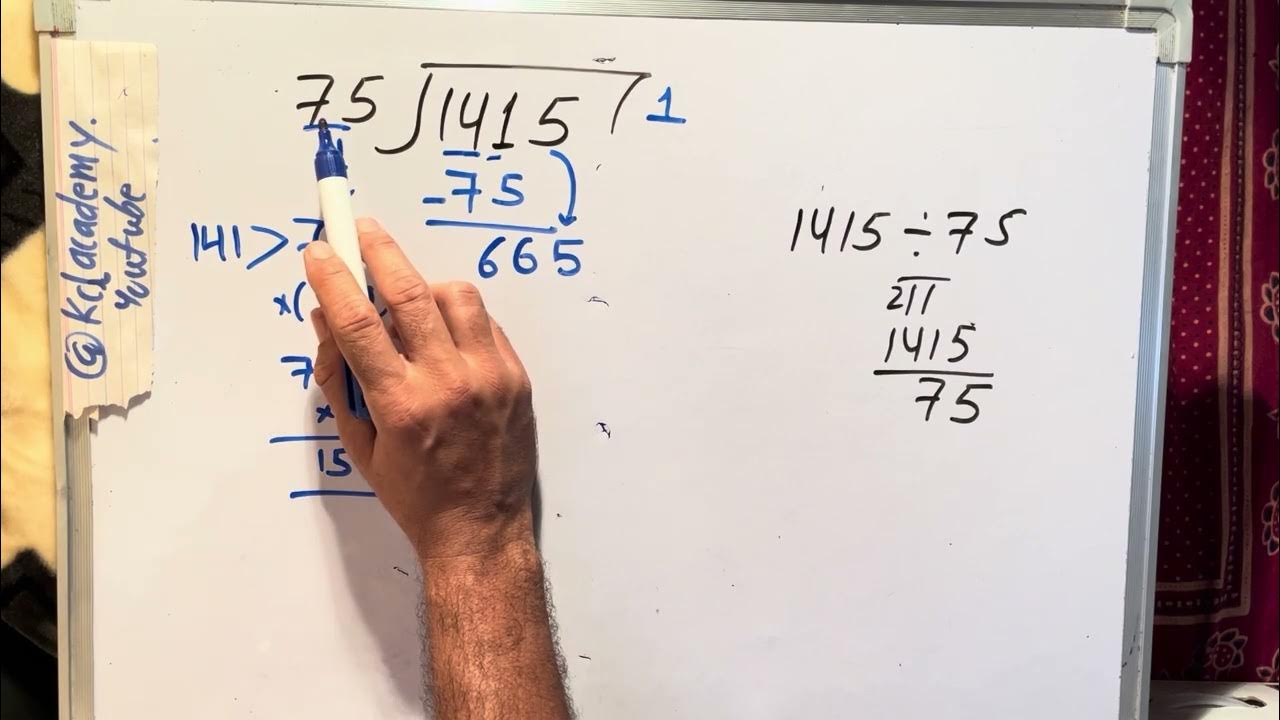 @Kclacademy.
Youtube
75 ) 1415 ( 1
-75
665
141 >
×(
7
×
15
1415 ÷ 75
211
1415
75